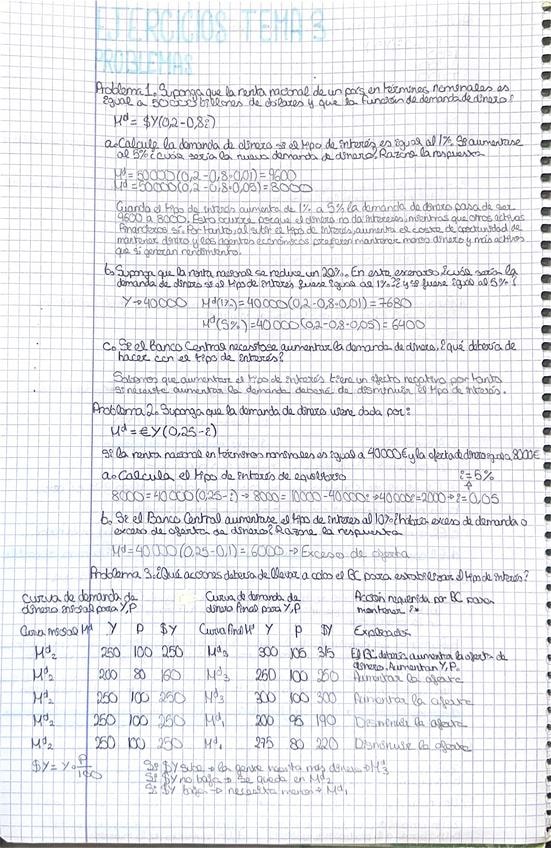 EJERCICIOS TEMA 3
PROBLEMAS
Problema 1. Suponga que la renta nacional de un país en términos nominales es
igual a 50000 billones de dólares y que la función de demanda de dinero:
Mᵈ = $Y(0,2-0,8i)
a. Calcule la demanda de dinero si el tipo de interés es igual al 1%. Si aumentase
al 5% ¿cuál sería la nueva demanda de dinero. Razone la respuesta
Mᵈ = 50000(0,2-0,8·0,01) = 9600
Mᵈ = 50000(0,2-0,8·0,05) = 8000
Cuando el tipo de interés aumenta de 1% a 5% la demanda de dinero pasa de ser
9600 a 8000. Esto ocurre porque el dinero no da intereses, mientras que otros activos
financieros sí. Por tanto, al subir el tipo de interés, aumenta el coste de oportunidad de
mantener dinero y los agentes económicos prefieren mantener menos dinero y más activos
que sí generan rendimiento.
b. Suponga que la renta nacional se reduce un 20%. En este escenario ¿cuál sería la
demanda de dinero si el tipo de interés fuese igual al 1%? ¿y si fuese igual al 5%?
Y → 40000 Mᵈ(1%) = 40000(0,2-0,8·0,01) = 7680
Mᵈ(5%) = 40000(0,2-0,8·0,05) = 6400
c. Si el Banco Central necesitase aumentar la demanda de dinero, ¿qué debería de
hacer con el tipo de interés?
Sabemos que aumentar el tipo de interés tiene un efecto negativo por tanto
si necesita aumentar la demanda deberá de disminuir el tipo de interés.
Problema 2. Suponga que la demanda de dinero viene dada por:
Mᵈ = €Y(0,25-i)
Si la renta nacional en términos nominales es igual a 40000€ y la oferta de dinero igual a 8000€
a. Calcula el tipo de interés de equilibrio i = 5%
8000 = 40000(0,25-i) → 8000 = 10000-40000i → 40000i = 2000 → i = 0,05
b. Si el Banco Central aumentase el tipo de interes al 10% ¿habría exceso de demanda o
exceso de oferta de dinero? Razone la respuesta
Md = 40000(0,25-0,1) = 6000 → Exceso de oferta
Problema 3. ¿Qué acciones debería de llevar a cabo el BC para estabilizar el tipo de interés?
Curva de demanda de Curva de demanda de Acción requerida por BC para
dinero inicial para Y,P dinero final para Y,P mantener i*
Curva inicial Mᵈ Y P $Y Curva final Mᵈ Y P $Y Explicación
Mᵈ₂ 250 100 250 Mᵈ₃ 300 105 315 El BC debería aumentar la oferta de
dinero. Aumentan Y,P.
Mᵈ₂ 200 80 160 Mᵈ₃ 250 100 250 Aumentar la oferta
Mᵈ₂ 250 100 250 Mᵈ₃ 300 100 300 Aumentar la oferta
Mᵈ₂ 250 100 250 Mᵈ₁ 200 95 190 Disminuir la oferta
Mᵈ₂ 250 100 250 Mᵈ₁ 275 80 220 Disminuir la oferta
$Y = Y · P/100 Si $Y sube → la gente necesita más dinero → Mᵈ₃
Si $Y no baja → se queda en Mᵈ₂
Si $Y baja → necesita menos → Mᵈ₁